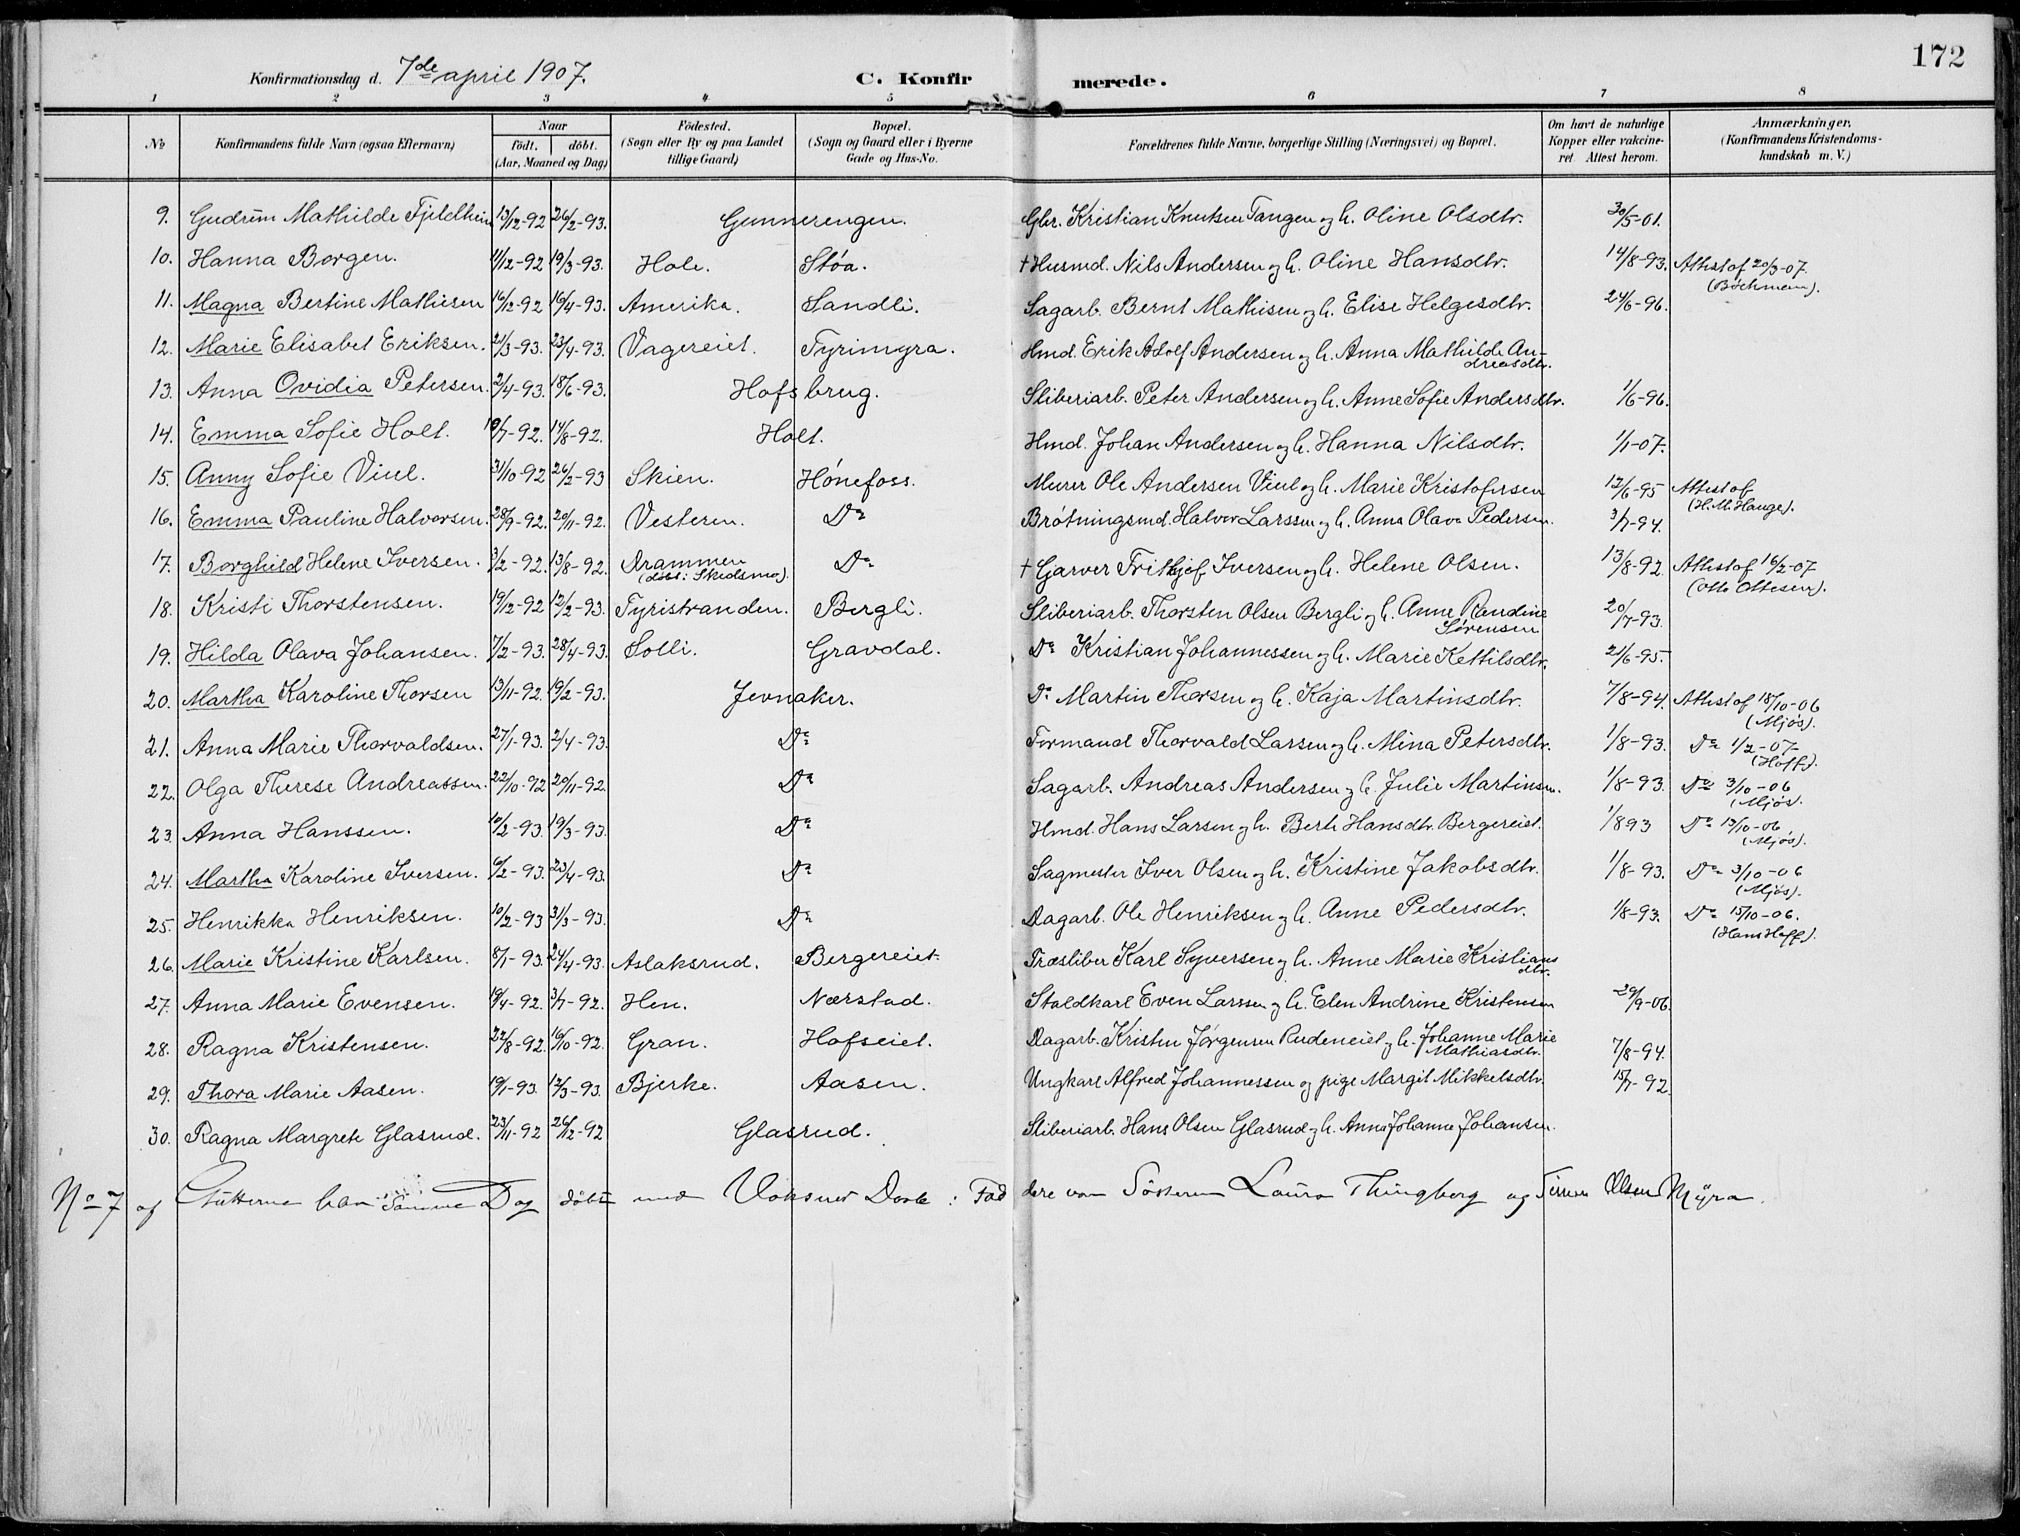 172
Konfirmationsdag d. 7de april 1907. C. Konfirmerede.
1 2 3 4 5 6 7 8
No Konfirmandens fulde Navn (ogsaa Efternavn) Naar født. døbt. (Aar, Maaned og Dag) Födested. (Sogn eller By og paa Landet tillige Gaard) Bopæl. (Sogn og Gaard eller i Byerne Gade og Hus-No. Forældrenes fulde Navne, borgerlige Stilling (Næringsvei) og Bopæl. Om havt de naturlige Kopper eller vakcineret Attest herom. Anmærkninger. (Konfirmandens Kristendomskundskab m. V.)
9. Gudrun Mathilde Fjeldheim 13/12-92 26/2-93. Gunnerengen. Gbr. Kristian Knutsen Tangen og h. Oline Olsdtr. 30/5-01.
10. Hanna Borgen. 11/12-92 19/3-93. Hole. Støa. † Husmd. Nils Andersen og h. Oline Hansdtr. 14/8-93. Attest af 20/3-07. (Bøchmann).
11. Magna Bertine Mathisen 16/12-92 16/4-93. Amerika. Sandli. Sagarb. Bernt Mathisen og h. Elise Helgesdtr. 24/6-96.
12. Marie Elisabet Eriksen. 21/3-93. 23/4-93. Vagereiet. Tyrimyra. Hmd. Erik Adolf Andersen og h. Anna Mathilde Andreasdtr.
13. Anna Ovidia Petersen. 2/4-93. 18/6-93. Hofsbrug. Sliberiarb. Peter Andersen og h. Anne Sofie Andersdtr. 1/6-96.
14. Emma Sofie Holt. 10/7-92. 14/8-92. Holt. Hmd. Johan Andersen og h. Hanna Nilsdtr. 1/1-07.
15. Anny Sofie Viul. 31/10-92 26/2-93 Skien. Hønefoss. Murer Ole Andersen Viul og h. Marie Kristofersen 12/6-95 Attest af (H. M. Hauge).
16. Emma Pauline Halvorsen. 28/9-92. 20/11-92. Vesteren. Do Brøtningsmd. Halvor Larssen og h. Anna Olava Pedersen. 3/7-94.
17. Borghild Helene Iversen. 3/2-92. 13/8-92. Drammen (døbt i Skedsmo). Do † Garver Frithjof Iversen og h. Helene Olsen. 13/8-92. Attest af 16/2-07 (Otto Ottesen).
18. Kristi Thorstensen. 19/12-92 12/2-93. Tyristranden. Bergli. Sliberiarb. Thorsten Olsen Bergli og h. Anne Randine Sørensen 20/7-93.
19. Hilda Olava Johansen. 7/2-93. 28/4-93. Solli. Gravdal. Do Kristian Johannessen og h. Marie Kettilsdtr. 21/6-95.
20. Martha Karoline Thorsen 13/11-92. 19/2-93. Jevnaker. Do Martin Thorsen og h. Kaja Martinsdtr. 7/8-94. Attest af 18/10-06 (Mjøs).
21. Anna Marie Thorvaldsen. 27/1-93. 2/4-93. Do Formand Thorvald Larsen og h. Mina Petersdtr. 1/8-93. Do 1/2-07 (Hoff).
22. Olga Therese Andreassen. 22/10-92 20/11-92. Do Sagarb. Andreas Andersen og h. Julie Martinsen. 1/8-93. Do 3/10-06 (Mjøs.
23. Anna Hanssen. 10/2-93. 19/3-93. Do Hmd. Hans Larsen og h. Berte Hansdtr. Bergereiet. 1/8 93 Do 13/10-06 (Mjøs).
24. Martha Karoline Iversen. 6/2-93. 23/4-93. Do Sagmester Iver Olsen og h. Kristine Jakobsdtr. 1/8-93. Do 3/10-06 (Mjøs).
25. Henrikka Henriksen. 10/2-93 31/3-93. Do Dagarb. Ole Henriksen og h. Anne Pedersdtr. 1/8-93. Do 15/10-06. (Hans Hoff).
26. Marie Kristine Karlsen. 8/1-93. 24/4-93. Aslaksrud. Bergereiet. Træsliber Karl Syversen og h. Anne Marie Kristiansdtr.
27. Anna Marie Evensen. 19/4-92. 3/7-92. Hen. Nærstad. Staldkarl Even Larssen og h. Elen Andrine Kristensen 29/9-06.
28. Ragna Kristensen. 22/8-92. 16/10-92. Gran. Hofseiet. Dagarb. Kristen Jørgensen Rudeneiet og h. Johanne Marie Mathiasdtr. 7/8-94.
29. Thora Marie Aasen. 19/1-93. 12/3-93. Bjerke. Aasen. Ungkarl Alfred Johannessen og pige Margit Mikkelsdtr. 15/7-92.
30. Ragna Margrete Glasrud. 23/11-92 26/12-92 Glasrud. Sliberiarb. Hans Olsen Glasrud og h. Anna Johanne Johansen.
No 7 af Gutterne blev samme Dag døbt med Voksnes Daab: Faddere var Søsteren Laura Thingberg og Olsen Myra.